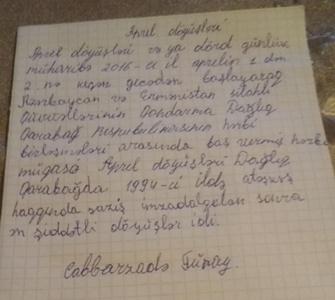 Aprel döyüşləri
Aprel döyüşləri və ya dörd günlük
müharibə 2016-cı il aprelin 1 dən
2 nə keçən gecədən başlayaraq
Azərbaycan və Ermənistan silahlı
Qüvvələrinin Qondarma Dağlıq
Qarabağ Respublikasının hərbi
birləşmələri arasında baş vermiş hərbi
münaqişə Aprel döyüşləri Dağlıq
Qarabağda 1994-cü ildə atəşkəs
haqqında saziş imzadalqdan sonra
ən şiddətli döyüşlər idi.
Cabbarzadə Günay.